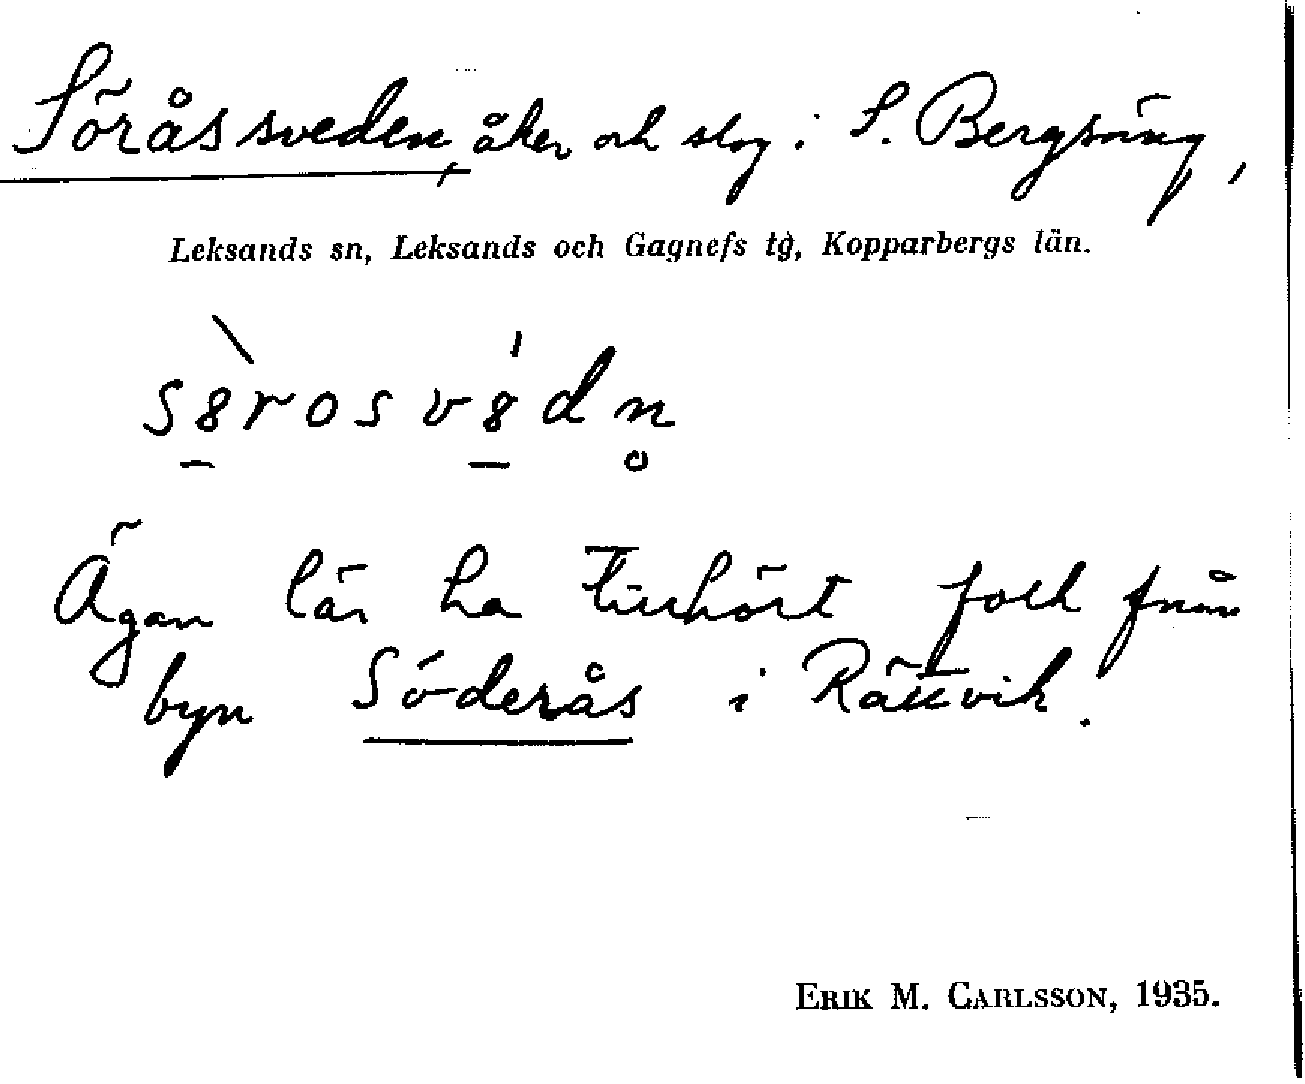 Söråssveden, åker och slog i S. Bergsäng,
Leksands sn, Leksands och Gagnefs tg, Kopparbergs län.
s8rosv8dn̥
Ägan lär ha tillhört folk från
byn Söderås i Rättvik.
ERIK M. CARLSSON, 1935.